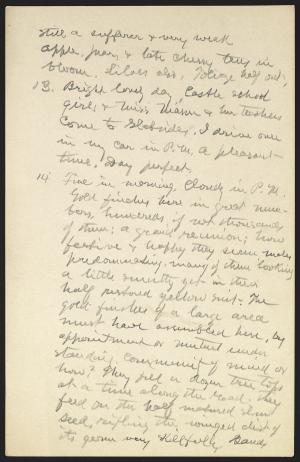 still a sufferer & very weak
apple, pear, & late cherry trees in
bloom. Lilacs also. Foliage half out.
13. Bright lovely day, Castle school
girls & Miss Mason & her teachers
Come to Slabsides. I drive over
in my car in P.M. a pleasant
time. Day perfect.
14 Fine in morning. Cloudy in P.M.
Gold finches here in great num-
bers, hundreds if not thousands
of them; a grand reunion; how
festive & happy they seem, males
predominating. many of them looking
a little smutty yet in their
half restored yellow suit. The
gold finches of a large area
must have assembled here, by
appointment or mutual under
standing. Community of mind or
how? They fill a dozen tree tops
at a time along the road. They
feed on the half matured elm
seeds, the winged disk of
its germ very skilfully.